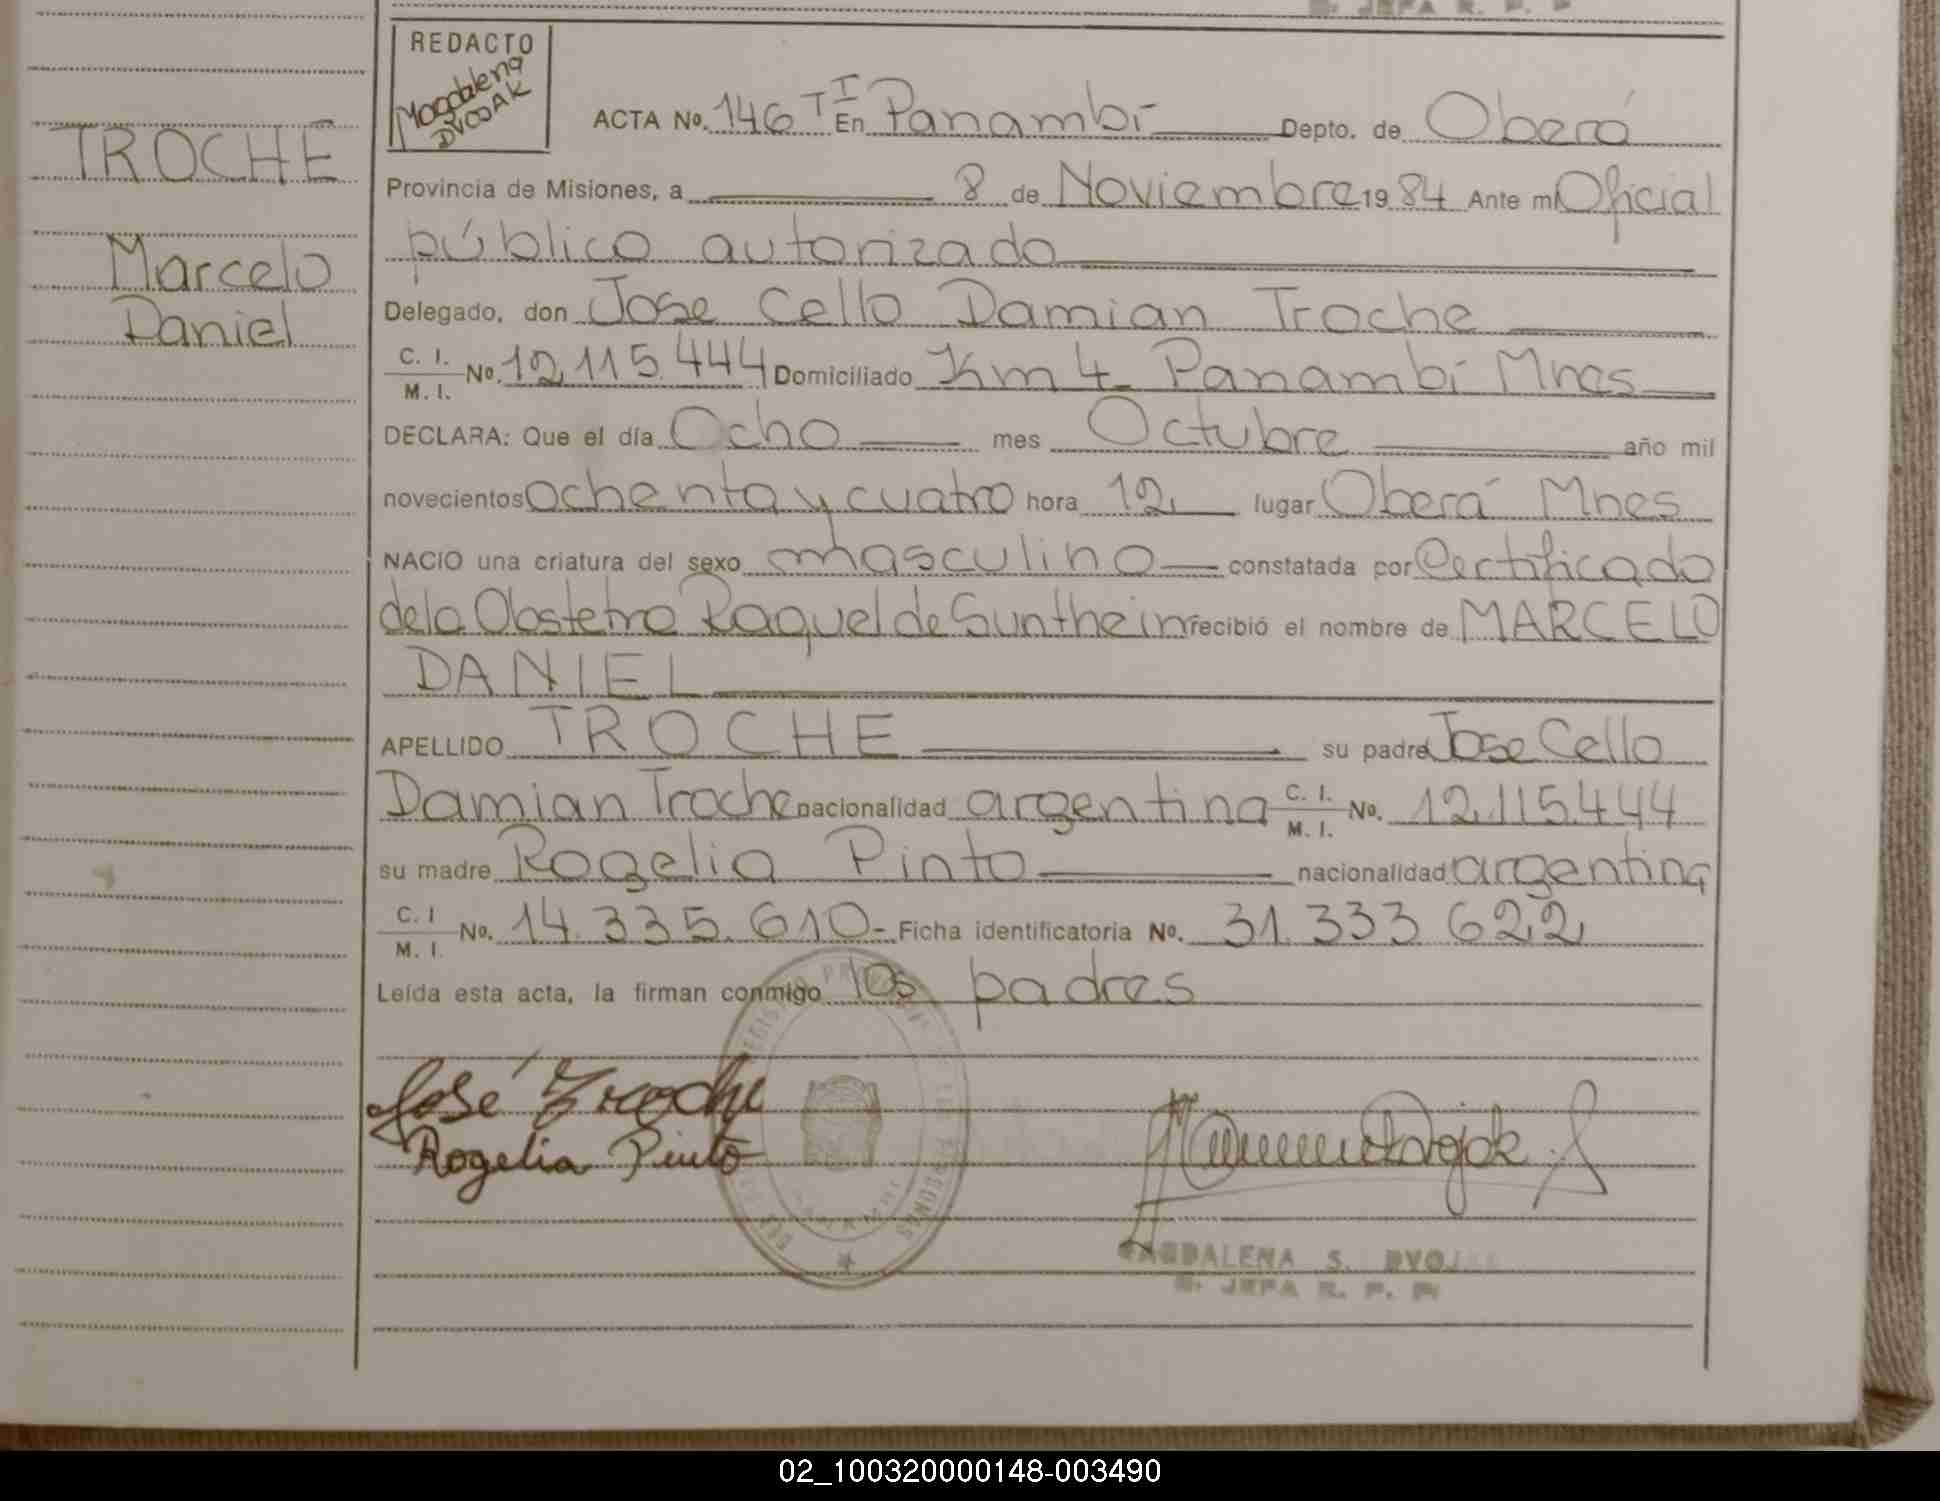 REDACTO
Magdalena
DVOJAK
ACTA No. 146 T I En Panambí Depto. de Oberá
TROCHE
Marcelo
Daniel
Provincia de Misiones, a 8 de Noviembre 1984 Ante mí Oficial
público autorizado
Delegado, don Jose Cello Damian Troche
C. I. M. I. No. 12.115.444 Domiciliado Km 4 Panambí Mnes
DECLARA: Que el día Ocho mes Octubre año mil
novecientos ochenta y cuatro hora 12 lugar Oberá Mnes
NACIO una criatura del sexo masculino constatada por Certificado
de la Obstetra Raquel de Sunthein recibió el nombre de MARCELO
DANIEL
APELLIDO TROCHE su padre Jose Cello
Damian Troche nacionalidad argentina C. I. M. I. No. 12.115.444
su madre Rogelia Pinto nacionalidad argentina
C. I M. I. No. 14.335.610- Ficha identificatoria No. 31.333 622
Leída esta acta, la firman conmigo los padres
José Troche
Rogelia Pinto
MAGDALENA S. DVOJAK
JEFA R. P. P
02_100320000148-003490